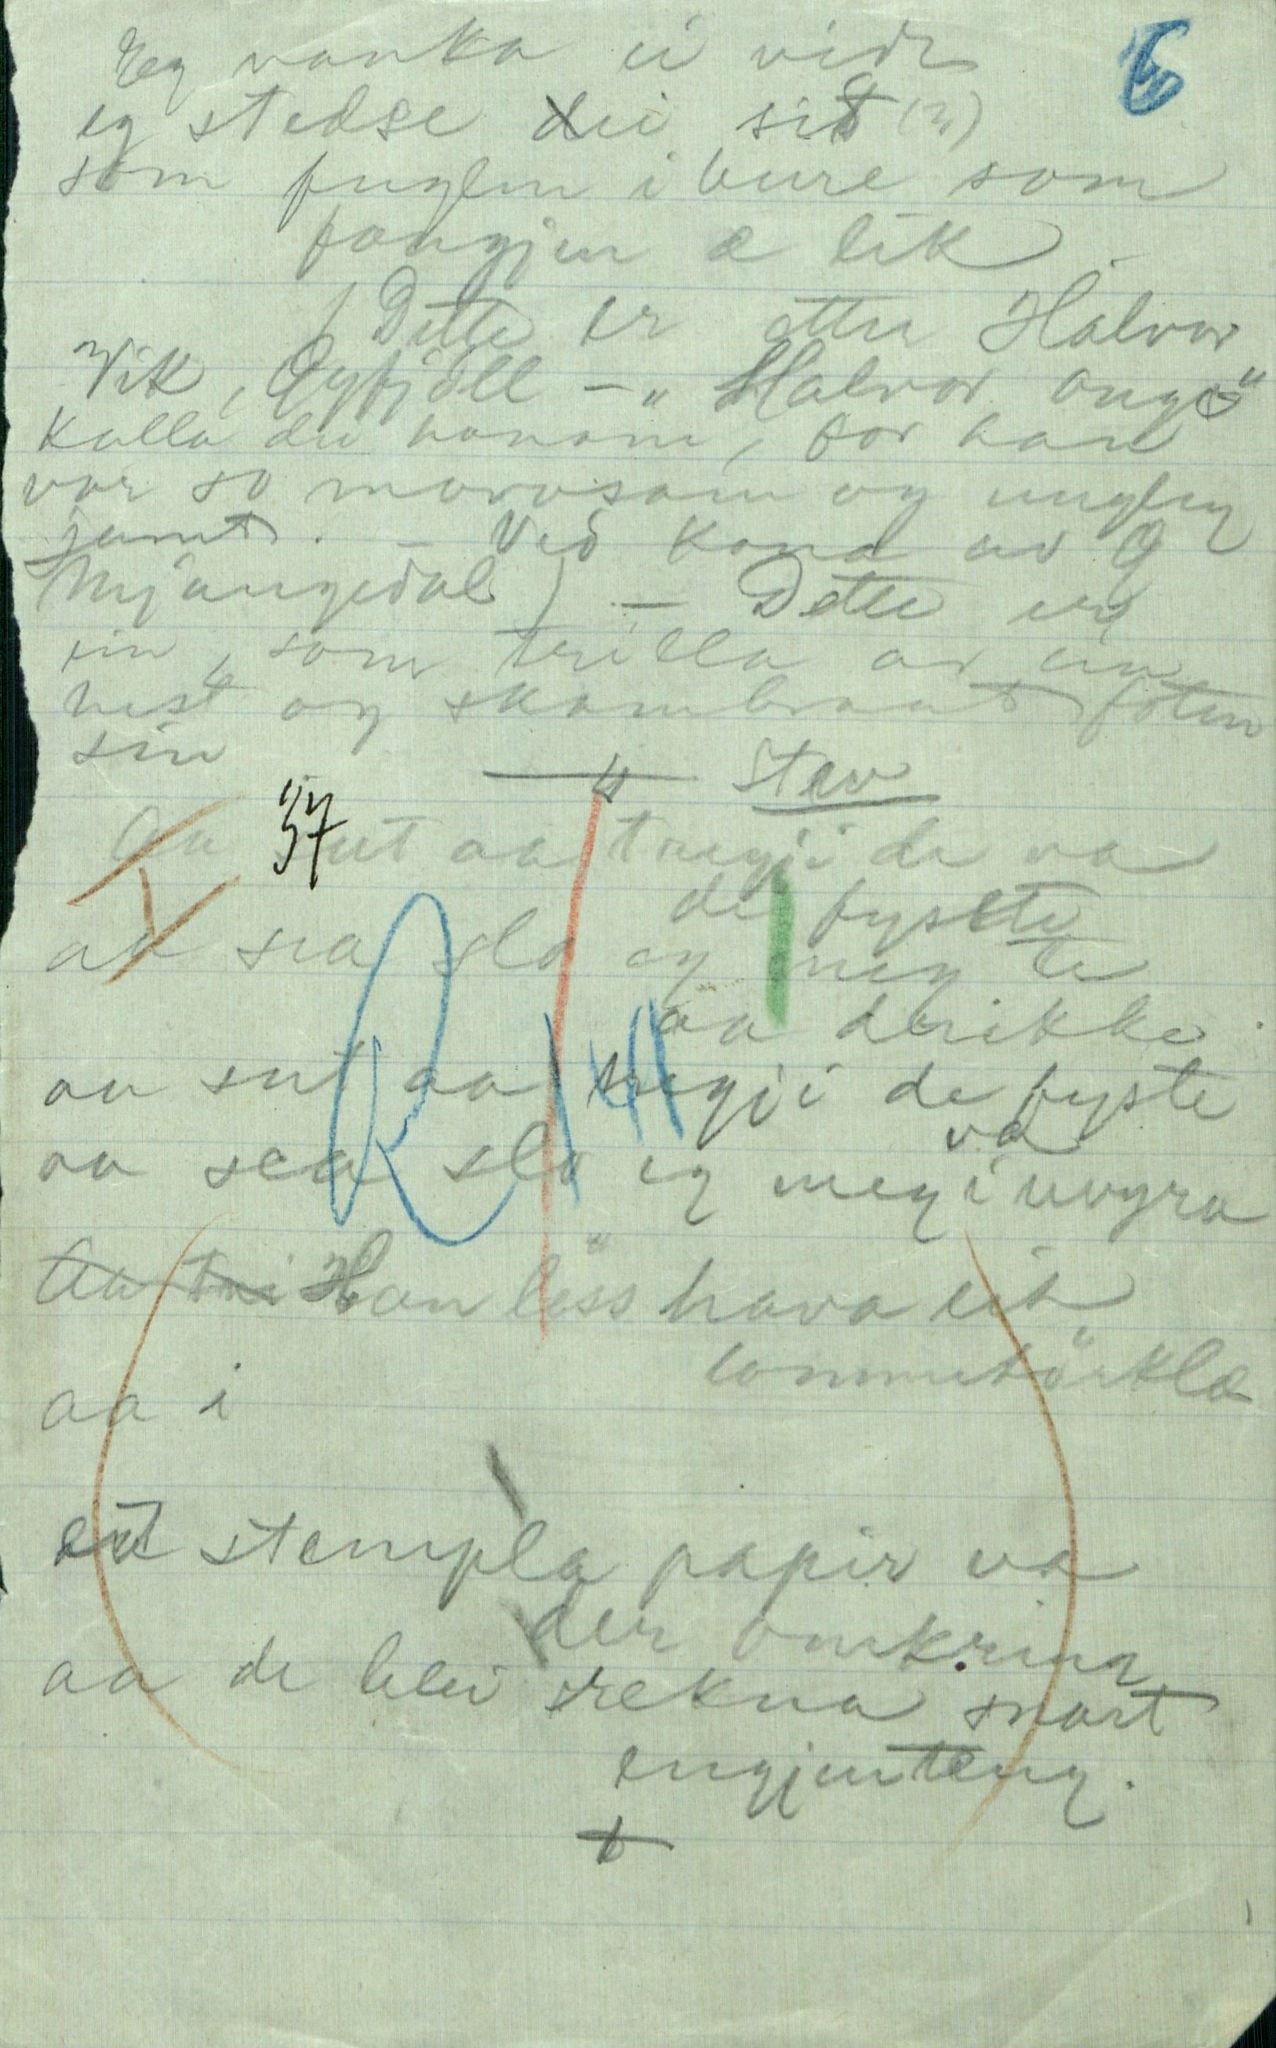 6
Eg vanka ei vide
eg stedse dei sit (r)
som fuglen i bure som
fangjen æ lik
(Dette er etter Halvor
Vik, Øyfjell – "Halvor unge"
kalla dei honom, for han
var so morosam og ungleg
jamt. – Ved kona av G
Mjaugedal) – Dette er
ein, som trilla av ein
hest og skambraut foten
sin
Stev
37
Aa sut aa tregji de va
de fyste
aa sea slo eg meg te
aa drikke
aa sut aa tregji de fyste
va
aa sea slo eg meg i
Han less hava eit
lommetörklæ
aa i
eit stempla papir va
der omkring
aa de blei rekna snart
engjenteng.